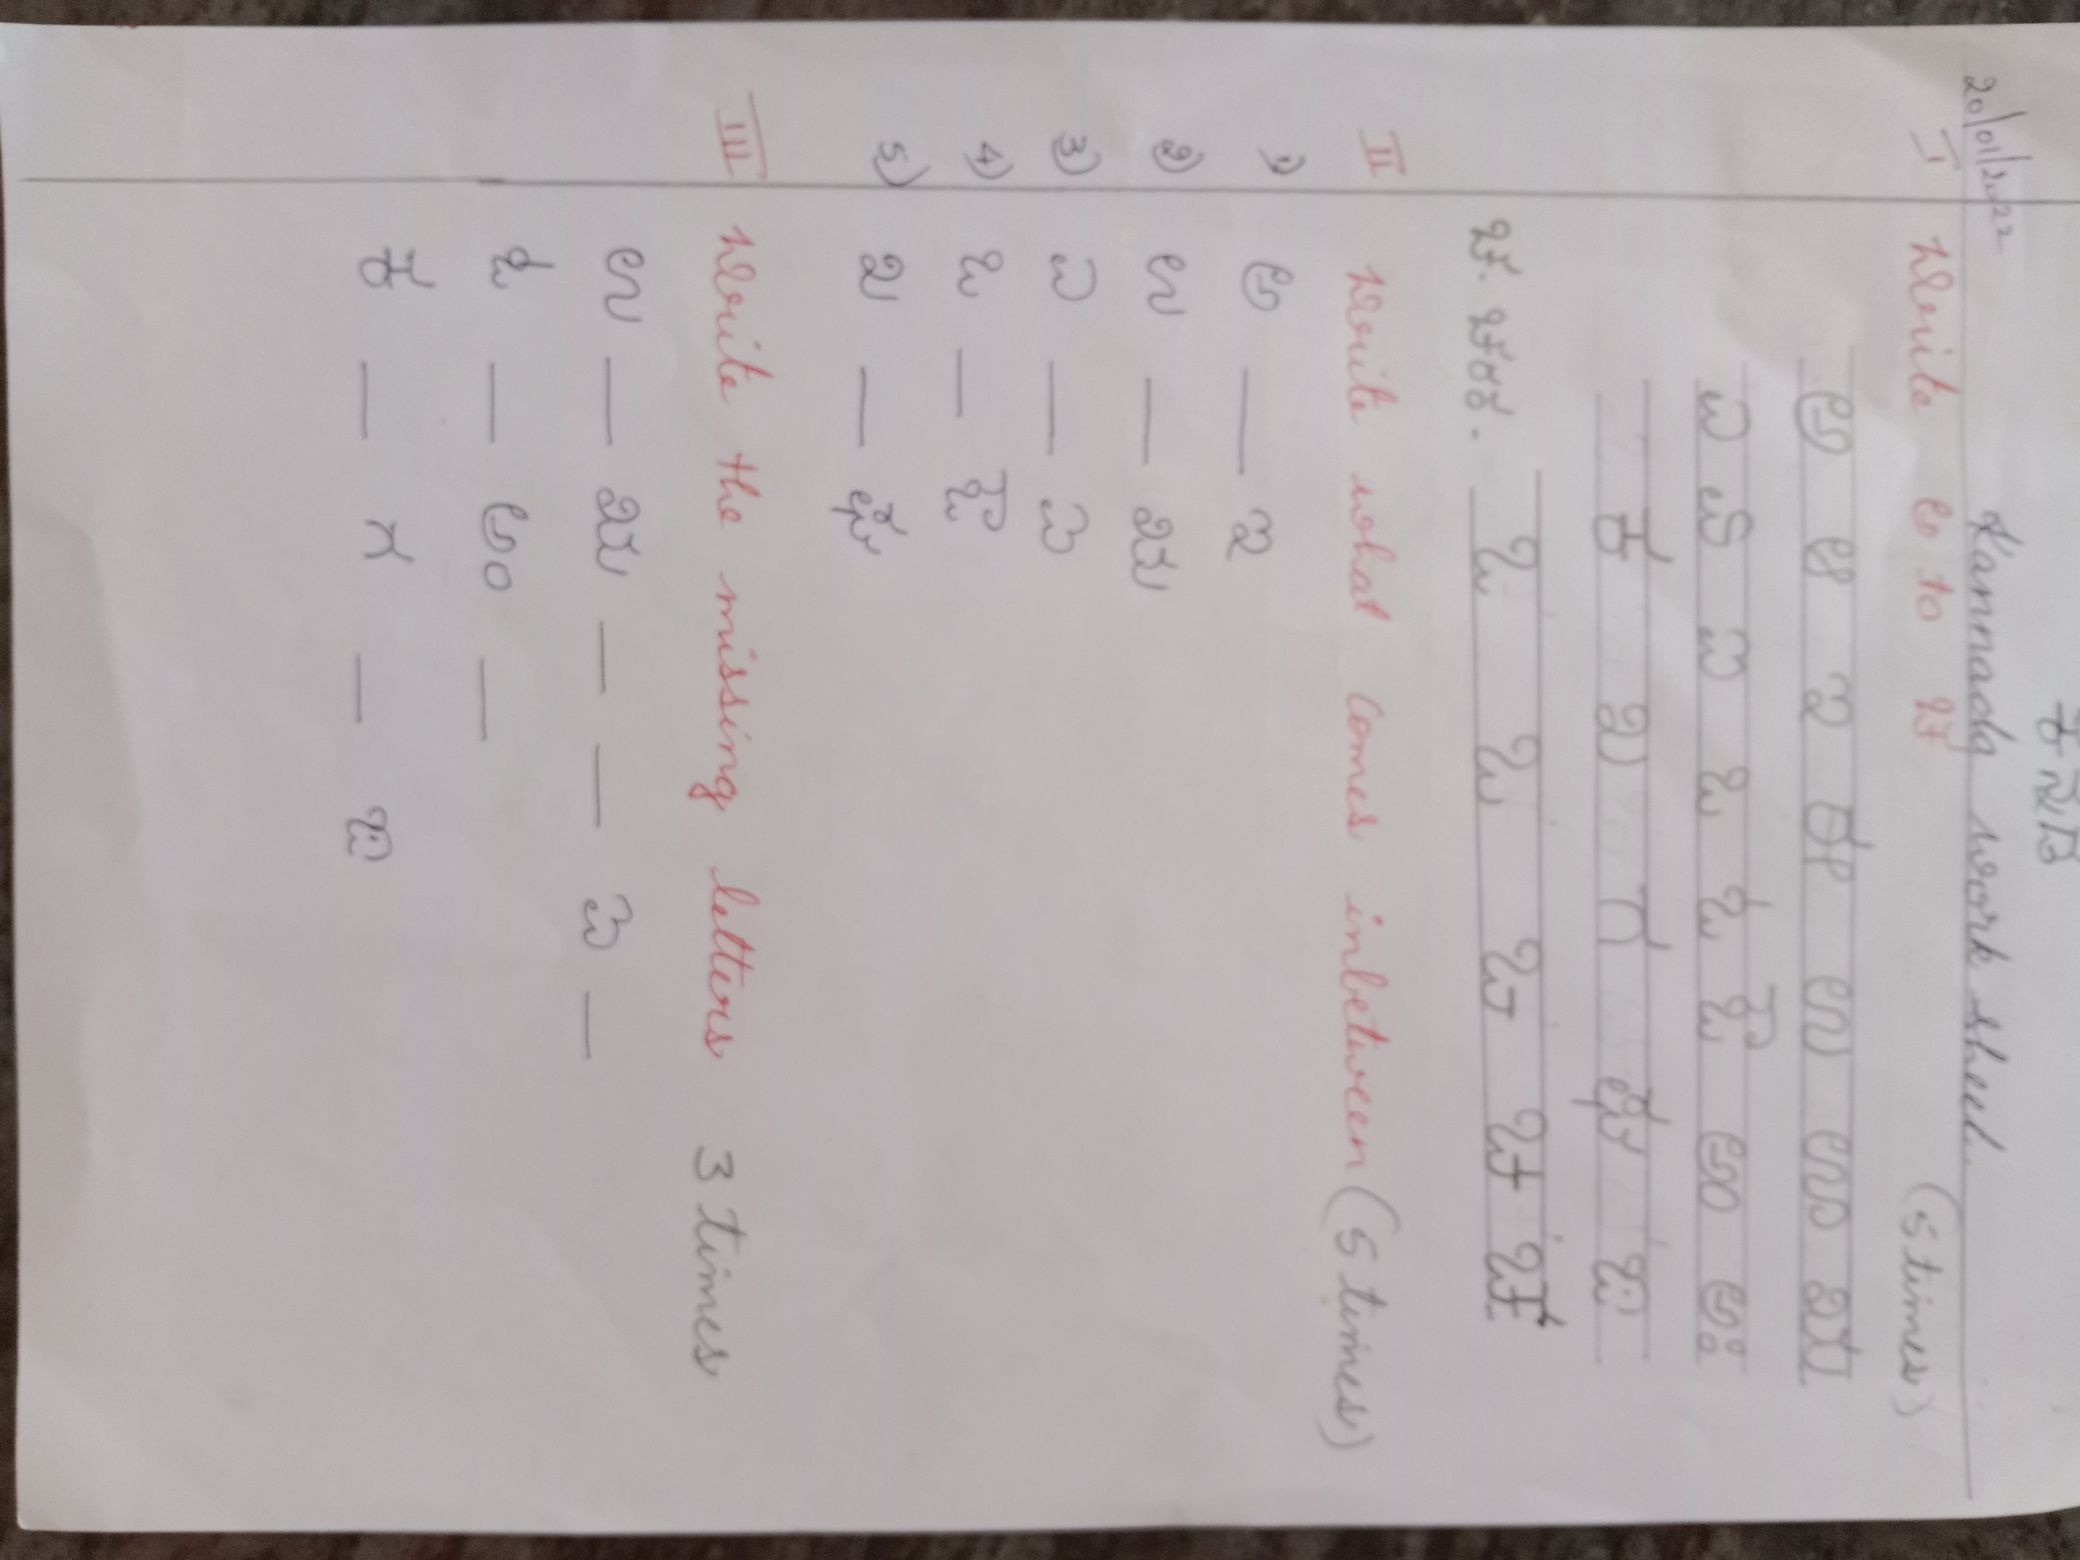 ಕನ್ನಡ
20/01/2022 Kannada work sheet.
I Write ಅ to ಜ (5 times)
ಅ ಆ ಇ ಈ ಉ ಊ ಋ
ಎ ಏ ಐ ಒ ಓ ಔ ಅಂ ಅಃ
ಕ ಖ ಗ ಘ ಙ
II Write what comes inbetween (5 times)
1) ಅ — ಇ
2) ಉ — ಋ
3) ಎ — ಐ
4) ಒ — ಔ
5) ಖ — ಘ
III Write the missing letters 3 times
ಉ — ಋ — — ಐ —
ಓ — ಅಂ —
ಕ — ಗ — ಙ